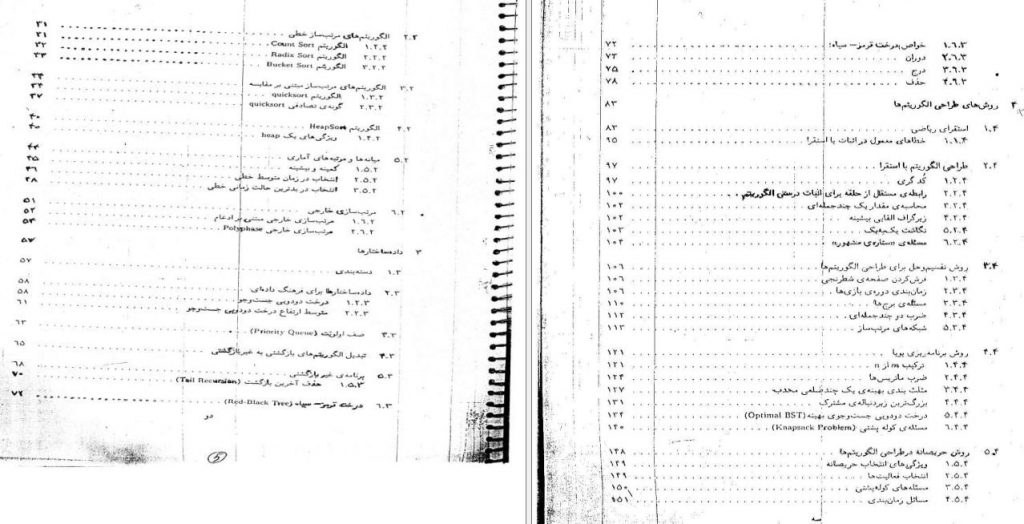 ۲.۲ الگوریتم‌های مرتب‌ساز خطی ۳۱
۱.۲.۲ الگوریتم Count Sort ۳۱
۲.۲.۲ الگوریتم Radix Sort ۳۲
۳.۲.۲ الگوریتم Bucket Sort ۳۳
۳.۲ الگوریتم‌های مرتب‌ساز مبتنی بر مقایسه ۳۴
۱.۳.۲ الگوریتم quicksort ۳۴
۲.۳.۲ گونه‌ی تصادفی quicksort ۳۷
۴.۲ الگوریتم HeapSort ۴۰
۱.۴.۲ ویژگی‌های یک heap ۴۰
۵.۲ میانه‌ها و مرتبه‌های آماری ۴۴
۱.۵.۲ کمینه و بیشینه ۴۵
۲.۵.۲ انتخاب در زمان متوسط خطی ۴۶
۳.۵.۲ انتخاب در بدترین حالت زمانی خطی ۴۸
۶.۲ مرتب‌سازی خارجی ۵۱
۱.۶.۲ مرتب‌سازی خارجی مبتنی بر ادغام ۵۲
۲.۶.۲ مرتب‌سازی خارجی Polyphase ۵۳
۳ داده‌ساختارها ۵۷
۱.۳ دسته‌بندی ۵۷
۲.۳ داده‌ساختارها برای فرهنگ داده‌ای ۵۸
۱.۲.۳ درخت دودویی جست‌وجو ۵۸
۲.۲.۳ متوسط ارتفاع درخت دودویی جست‌وجو ۶۱
۳.۳ صف اولویت (Priority Queue) ۶۳
۴.۳ تبدیل الگوریتم‌های بازگشتی به غیربازگشتی ۶۵
۵.۳ برنامه‌ی غیربازگشتی ۶۸
۱.۵.۳ حذف آخرین بازگشت (Tail Recursion) ۷۰
۶.۳ درخت قرمز–سیاه (Red-Black Tree) ۷۲
دو
۵
۱.۶.۳ خواص درخت قرمز–سیاه: ۷۲
۲.۶.۳ دوران ۷۳
۳.۶.۳ درج ۷۵
۴.۶.۳ حذف ۷۸
۴ روش‌های طراحی الگوریتم‌ها ۸۳
۱.۴ استقرای ریاضی ۸۳
۱.۱.۴ خطاهای معمول در اثبات با استقرا ۹۵
۲.۴ طراحی الگوریتم با استقرا ۹۷
۱.۲.۴ کُد گری ۹۷
۲.۲.۴ رابطه‌ی مستقل از حلقه برای اثبات درستی الگوریتم ۱۰۰
۳.۲.۴ محاسبه‌ی مقدار یک چندجمله‌ای ۱۰۲
۴.۲.۴ زیرگراف القایی بیشینه ۱۰۲
۵.۲.۴ نگاشت یک‌به‌یک ۱۰۳
۶.۲.۴ مسئله‌ی «ستاره‌ی مشهور» ۱۰۴
۳.۴ روش تقسیم‌وحل برای طراحی الگوریتم‌ها ۱۰۶
۱.۳.۴ فرش‌کردن صفحه‌ی شطرنجی ۱۰۶
۲.۳.۴ زمان‌بندی دوره‌ی بازی‌ها ۱۰۶
۳.۳.۴ مسئله‌ی برج‌ها ۱۱۰
۴.۳.۴ ضرب دو چندجمله‌ای ۱۱۲
۵.۳.۴ شبکه‌های مرتب‌ساز ۱۱۳
۴.۴ روش برنامه‌ریزی پویا ۱۲۱
۱.۴.۴ ترکیب m از n ۱۲۱
۲.۴.۴ ضرب ماتریس‌ها ۱۲۴
۳.۴.۴ مثلث بندی بهینه‌ی یک چندضلعی محدب ۱۲۷
۴.۴.۴ بزرگ‌ترین زیردنباله‌ی مشترک ۱۳۱
۵.۴.۴ درخت دودویی جست‌وجوی بهینه (Optimal BST) ۱۳۴
۶.۴.۴ مسئله‌ی کوله پشتی (Knapsack Problem) ۱۴۰
۵.۴ روش حریصانه در طراحی الگوریتم‌ها ۱۴۸
۱.۵.۴ ویژگی‌های انتخاب حریصانه ۱۴۹
۲.۵.۴ انتخاب فعالیت‌ها ۱۴۹
۳.۵.۴ مسئله‌های کوله‌پشتی ۱۵۰
۴.۵.۴ مسائل زمان‌بندی ۱۵۱
سه